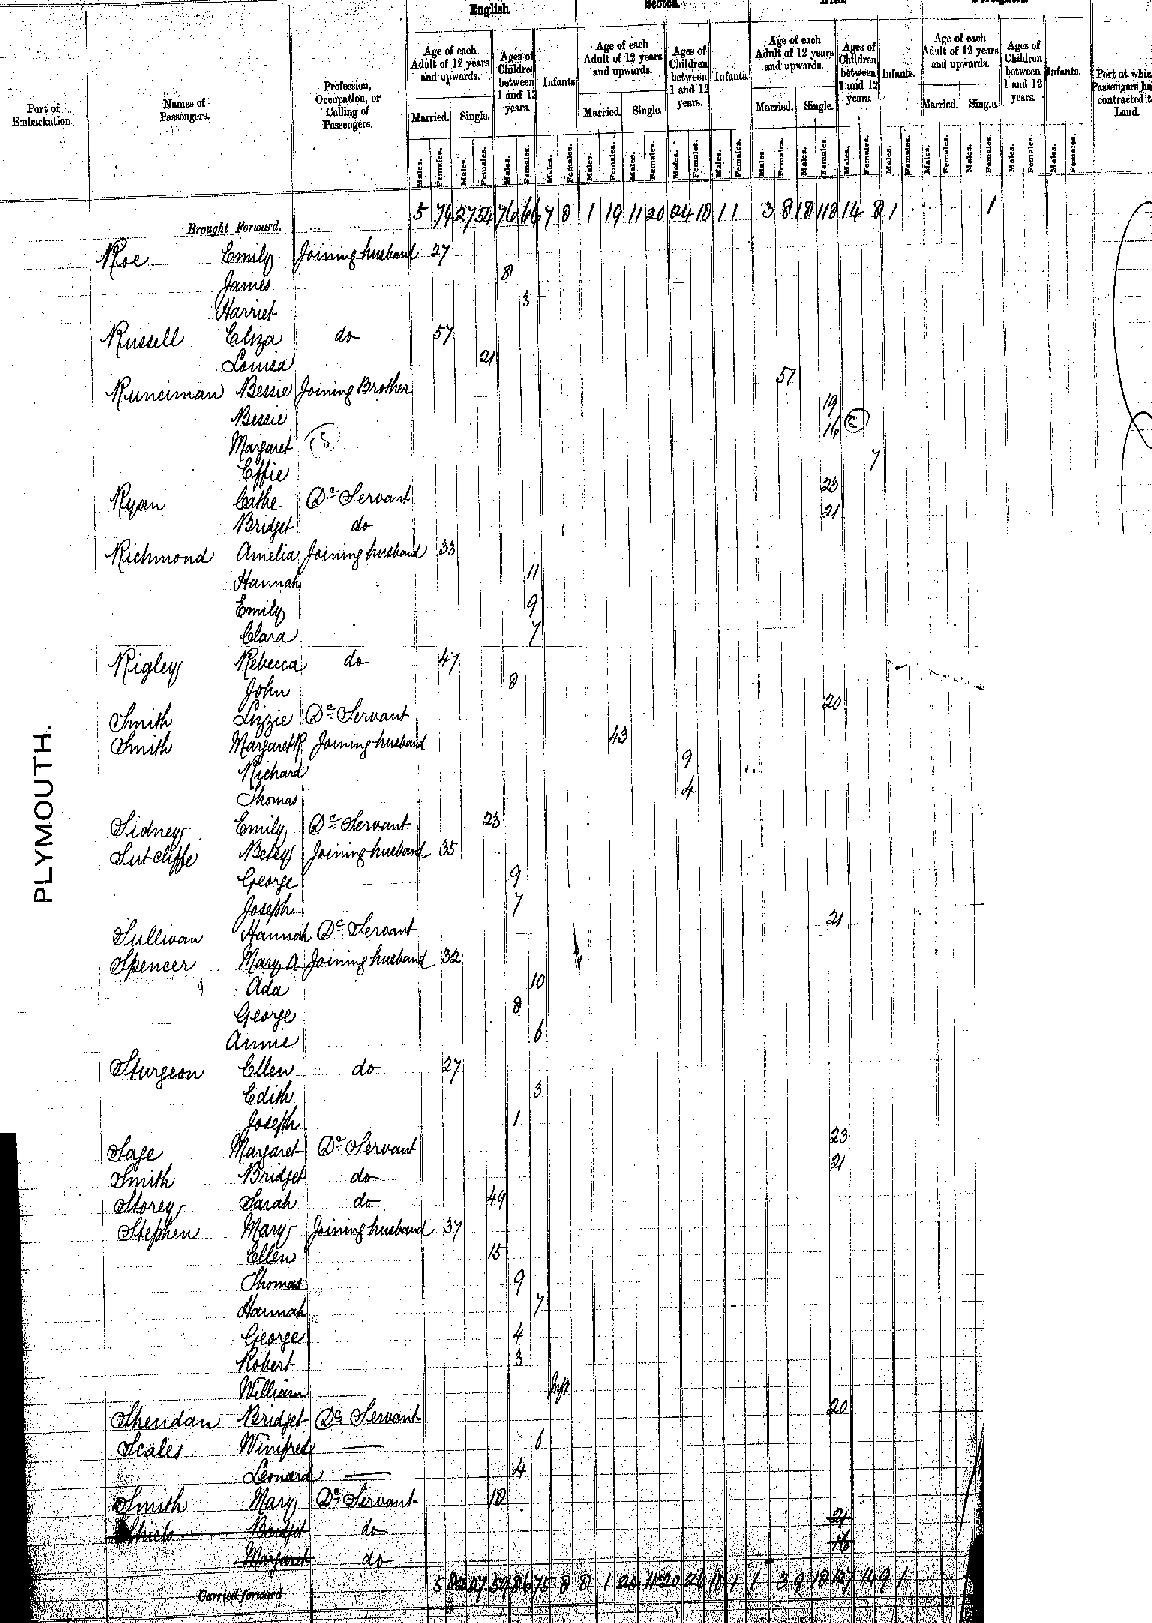 English.
Age of each Adult of 12 years and upwards.
Ages of Children between 1 and 12 years.
Infants.
Age of each Adult of 12 years and upwards.
Ages of Children between 1 and 12 years.
Infants.
Age of each Adult of 12 years and upwards.
Ages of Children between 1 and 12 years.
Infants.
Age of each Adult of 12 years and upwards.
Ages of Children between 1 and 12 years.
Infants.
Port of Embarkation.
Names of Passengers.
Profession, Occupation, or Calling of Passengers.
Married. Single. Married. Single. Married. Single. Married. Single.
Males. Females. Males. Females. Males. Females. Males. Females. Males. Females. Males. Females. Males. Females. Males. Females. Males. Females. Males. Females. Males. Females. Males. Females. Males. Females. Males. Females. Males. Females. Males. Females.
Brought Forward. 5 74 27 54 76 66 7 8 1 19 11 20 24 18 1 1 3 8 18 118 14 8 1 1
Roe Emily Joining husband 27
James 8
Harriet 3
Russell Eliza do 57
Louisa 21
Runciman Bessie Joining Brother 51
Bessie 19
Margaret 16
Effie 7
Ryan Cathe Do Servant 23
Bridget do 21
Richmond Amelia Joining husband 33
Hannah 11
Emily 9
Clara 7
Rigley Rebecca do 47
John 8
Smith Lizzie Do Servant 20
Smith Margaret R. Joining husband 43
Richard 9
Thomas 4
Sidney Emily Do Servant 23
Sutcliffe Betsy Joining husband 35
George 9
Joseph 7
Sullivan Hannah Do Servant 21
Spencer Mary A Joining husband 32
Ada 10
George 8
Annie 6
Sturgeon Ellen do 27
Edith 3
Joseph 1
Sage Margaret Do Servant 23
Smith Bridget do 21
Storey Sarah do 49
Stephen Mary Joining husband 37
Ellen 15
Thomas 9
Hannah 7
George 4
Robert 3
William
Sheridan Bridget Do Servant 20
Scales Winifrede 6
Leonard 4
Smith Mary Do Servant 18
Bridget do 21
Margaret do 16
Carried forward
PLYMOUTH.